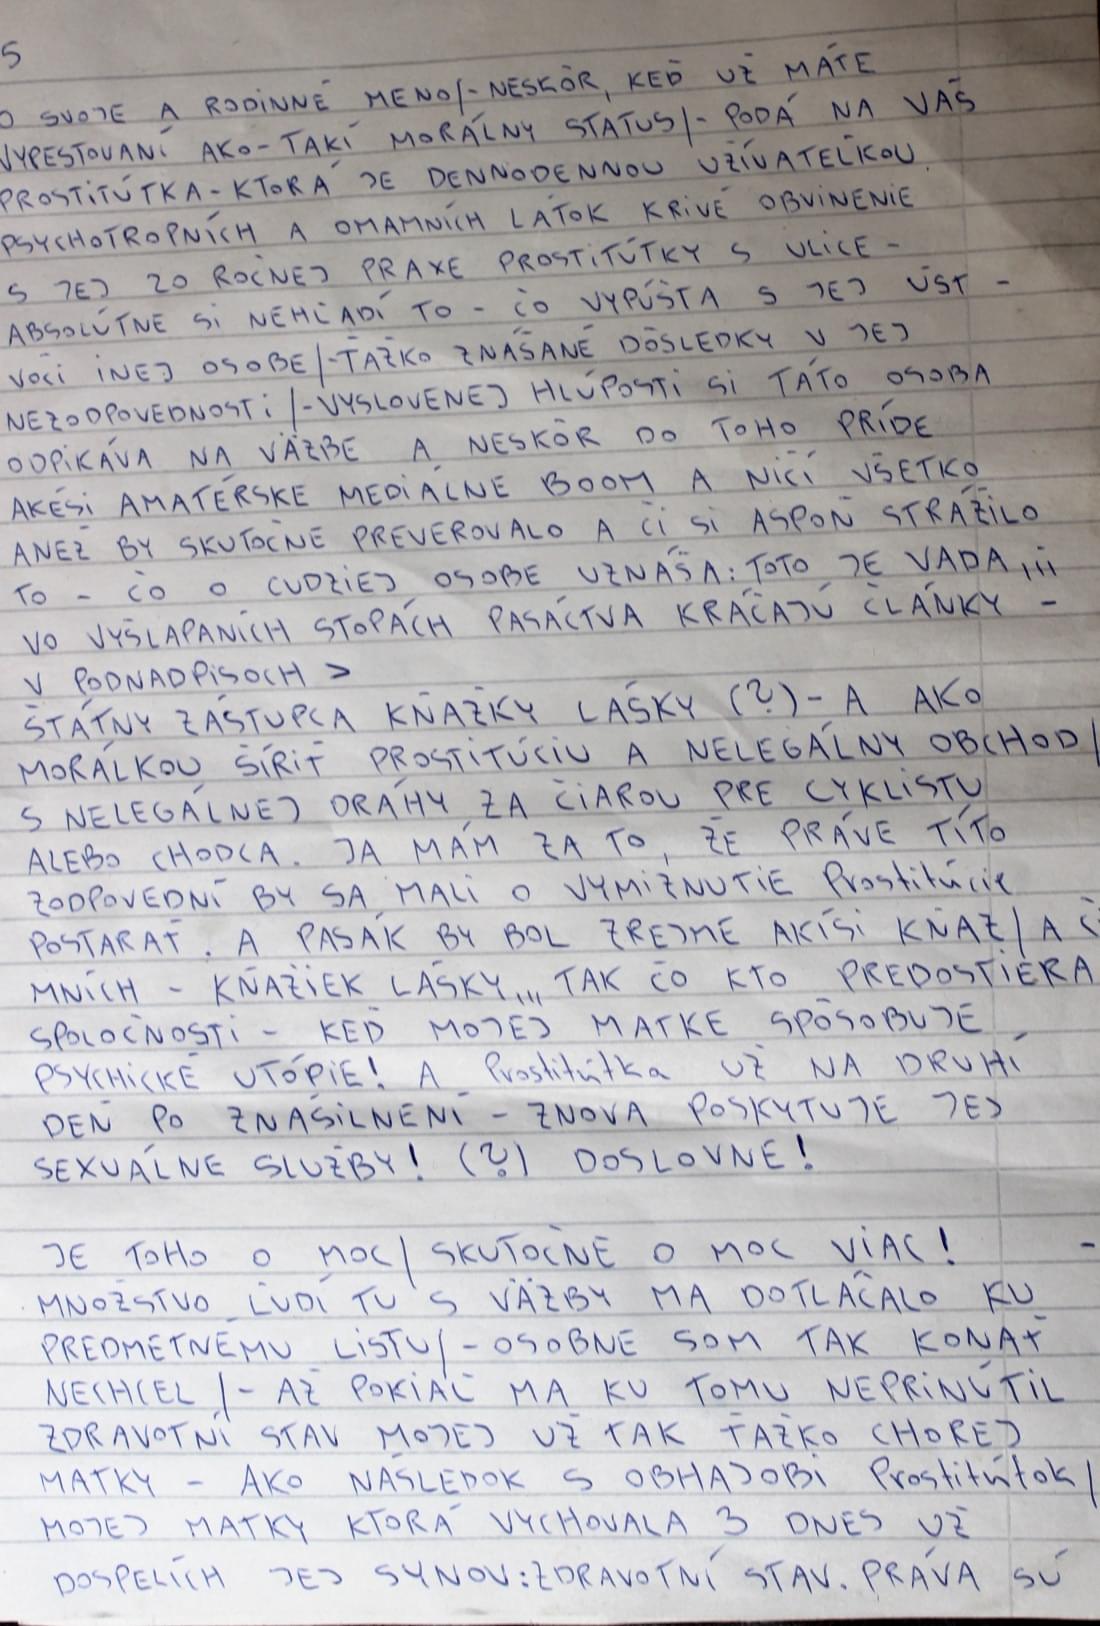 5
O SVOJE A RODINNÉ MENO/-NESKÔR, KEĎ UŽ MÁTE
VYPESTOVANÍ AKO-TAKÍ MORÁLNY STATUS/- PODÁ NA VÁS
PROSTITÚTKA-KTORÁ JE DENNODENNOU UŽÍVATEĽKOU
PSYCHOTROPNÍCH A OMAMNÍCH LÁTOK KRIVÉ OBVINENIE
S JEJ 20 ROČNEJ PRAXE PROSTITÚTKY S ULICE -
ABSOLÚTNE SI NEHĽADÍ TO - ČO VYPÚŠTA S JEJ ÚST -
VOČI INEJ OSOBE/-ŤAŽKO ZNÁŠANÉ DÔSLEDKY V JEJ
NEZODPOVEDNOSTI/-VYSLOVENEJ HLÚPOSTI SI TÁTO OSOBA
ODPIKÁVA NA VÄZBE A NESKÔR DO TOHO PRÍDE
AKÉSI AMATÉRSKE MEDIÁLNE BOOM A NIČÍ VŠETKO
ANEŽ BY SKUTOČNE PREVEROVALO A ČI SI ASPOŇ STRÁŽILO
TO - ČO O CUDZIEJ OSOBE UZNÁŠA: TOTO JE VADA,,,
VO VYŠLAPANÍCH STOPÁCH PASÁCTVA KRÁČAJÚ ČLÁNKY -
V PODNADPISOCH >
ŠTÁTNY ZÁSTUPCA KŇAŽKY LÁSKY (?) - A AKO
MORÁLKOU ŠÍRIŤ PROSTITÚCIU A NELEGÁLNY OBCHOD/
S NELEGÁLNEJ DRÁHY ZA ČIAROU PRE CYKLISTU
ALEBO CHODCA. JA MÁM ZA TO, ŽE PRÁVE TÍTO
ZODPOVEDNÍ BY SA MALI O VYMIZNUTIE Prostitúcie
POSTARAŤ. A PASÁK BY BOL ZREJME AKÍSI KŇAZ/A Č
MNÍCH - KŇAŽIEK LÁSKY,,, TAK ČO KTO PREDOSTIERA
SPOLOČNOSTI - KEĎ MOJEJ MATKE SPÔSOBUJE
PSYCHICKÉ UTÓPIE! A Prostitútka UŽ NA DRUHÍ
DEŇ PO ZNÁSILNENÍ - ZNOVA POSKYTUJE JEJ
SEXUÁLNE SLUŽBY! (?) DOSLOVNE!
JE TOHO O MOC/ SKUTOČNE O MOC VIAC! -
MNOŽSTVO ĽUDÍ TU S VÄZBY MA DOTLAČALO KU
PREDMETNÉMU LISTU/- OSOBNE SOM TAK KONAŤ
NECHCEL/- AŽ POKIAĽ MA KU TOMU NEPRINÚTIL
ZDRAVOTNÍ STAV MOJEJ UŽ TAK ŤAŽKO CHOREJ
MATKY - AKO NÁSLEDOK S OBHAJOBI Prostitútok/
MOJEJ MATKY KTORÁ VYCHOVALA 3 DNES UŽ
DOSPELÍCH JEJ SYNOV: ZDRAVOTNÍ STAV. PRÁVA SÚ